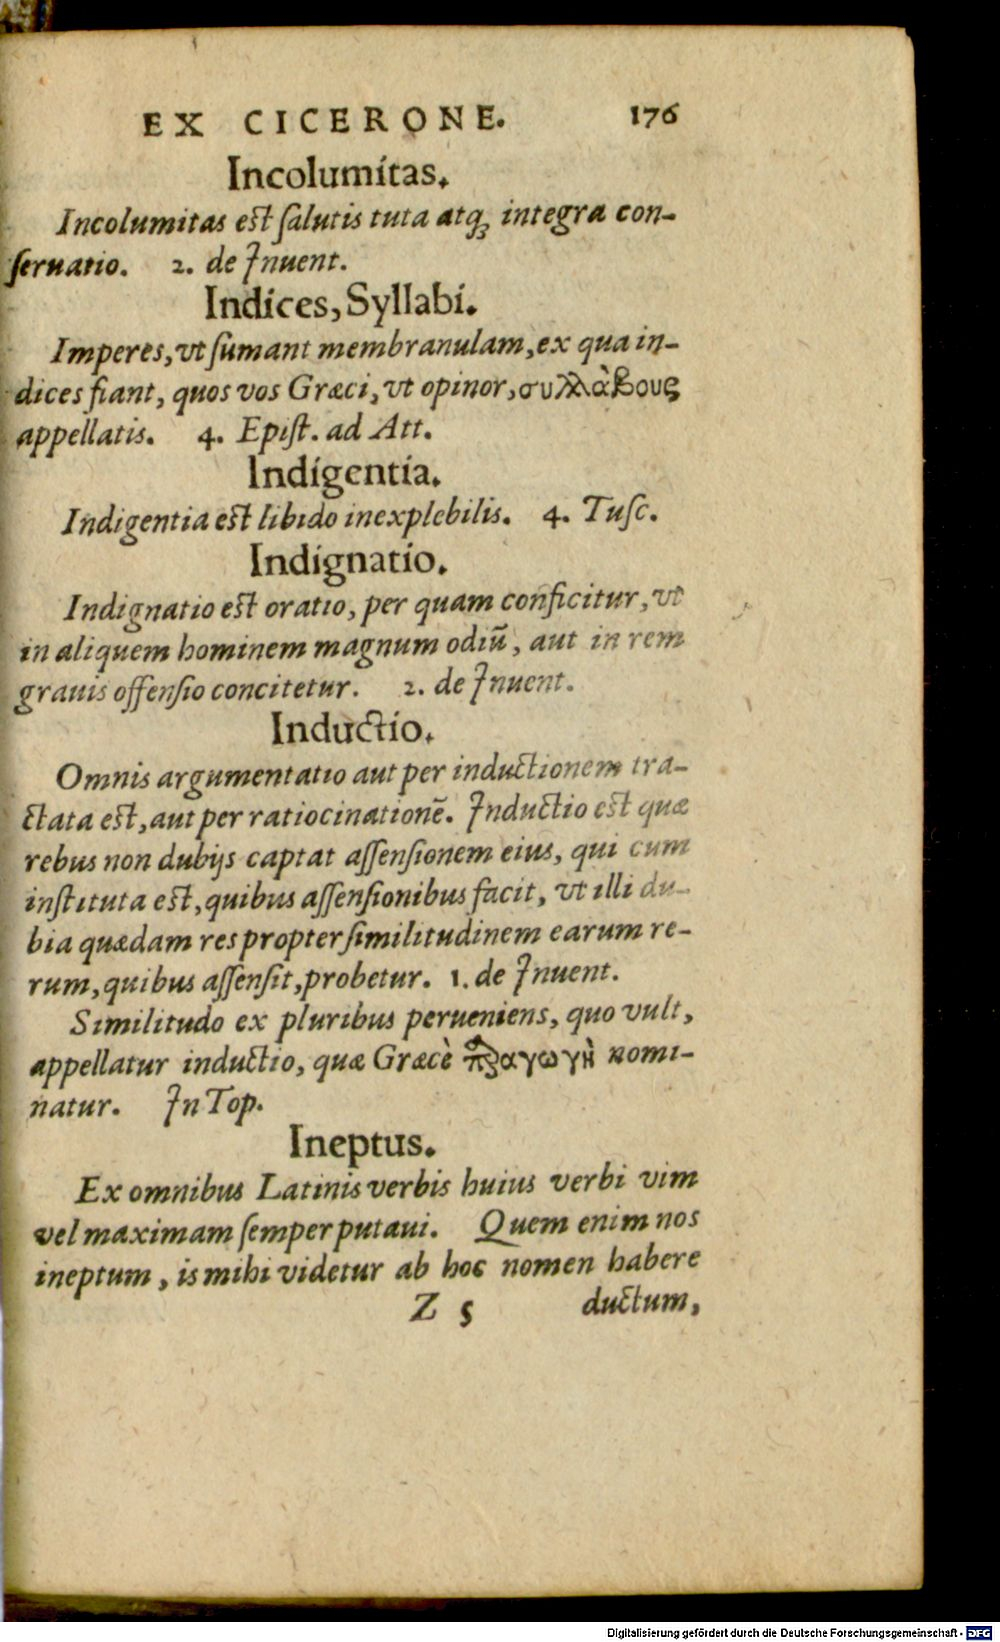 EX CICERONE. 176
Incolumitas.
Incolumitas est ſalutis tuta atq́; integra con-
ſeruatio. 2. de Inuent.
Indices, Syllabi.
Imperes, vt ſumant membranulam, ex qua in-
dices fiant, quos vos Græci, vt opinor, συλλάβους
appellatis. 4. Epiſt. ad Att.
Indigentia.
Indigentia est libido inexplebilis. 4. Tuſc.
Indignatio.
Indignatio est oratio, per quam conficitur, vt
in aliquem hominem magnum odiū, aut in rem
grauis offenſio concitetur. 2. de Inuent.
Inductio.
Omnis argumentatio aut per inductionem tra-
ctata est, aut per ratiocinationē. Inductio est quæ
rebus non dubijs captat aſſenſionem eius, qui cum
inſtituta est, quibus aſſenſionibus facit, vt illi du-
bia quædam res propter ſimilitudinem earum re-
rum, quibus aſſenſit, probetur. 1. de Inuent.
Similitudo ex pluribus perueniens, quo vult,
appellatur inductio, quæ Græcè nomi-
natur. In Top.
Ineptus.
Ex omnibus Latinis verbis huius verbi vim
vel maximam ſemper putaui. Quem enim nos
ineptum, is mihi videtur ab hoc nomen habere
Z 5 ductum,
Digitalisierung gefördert durch die Deutsche Forschungsgemeinschaft - DFG